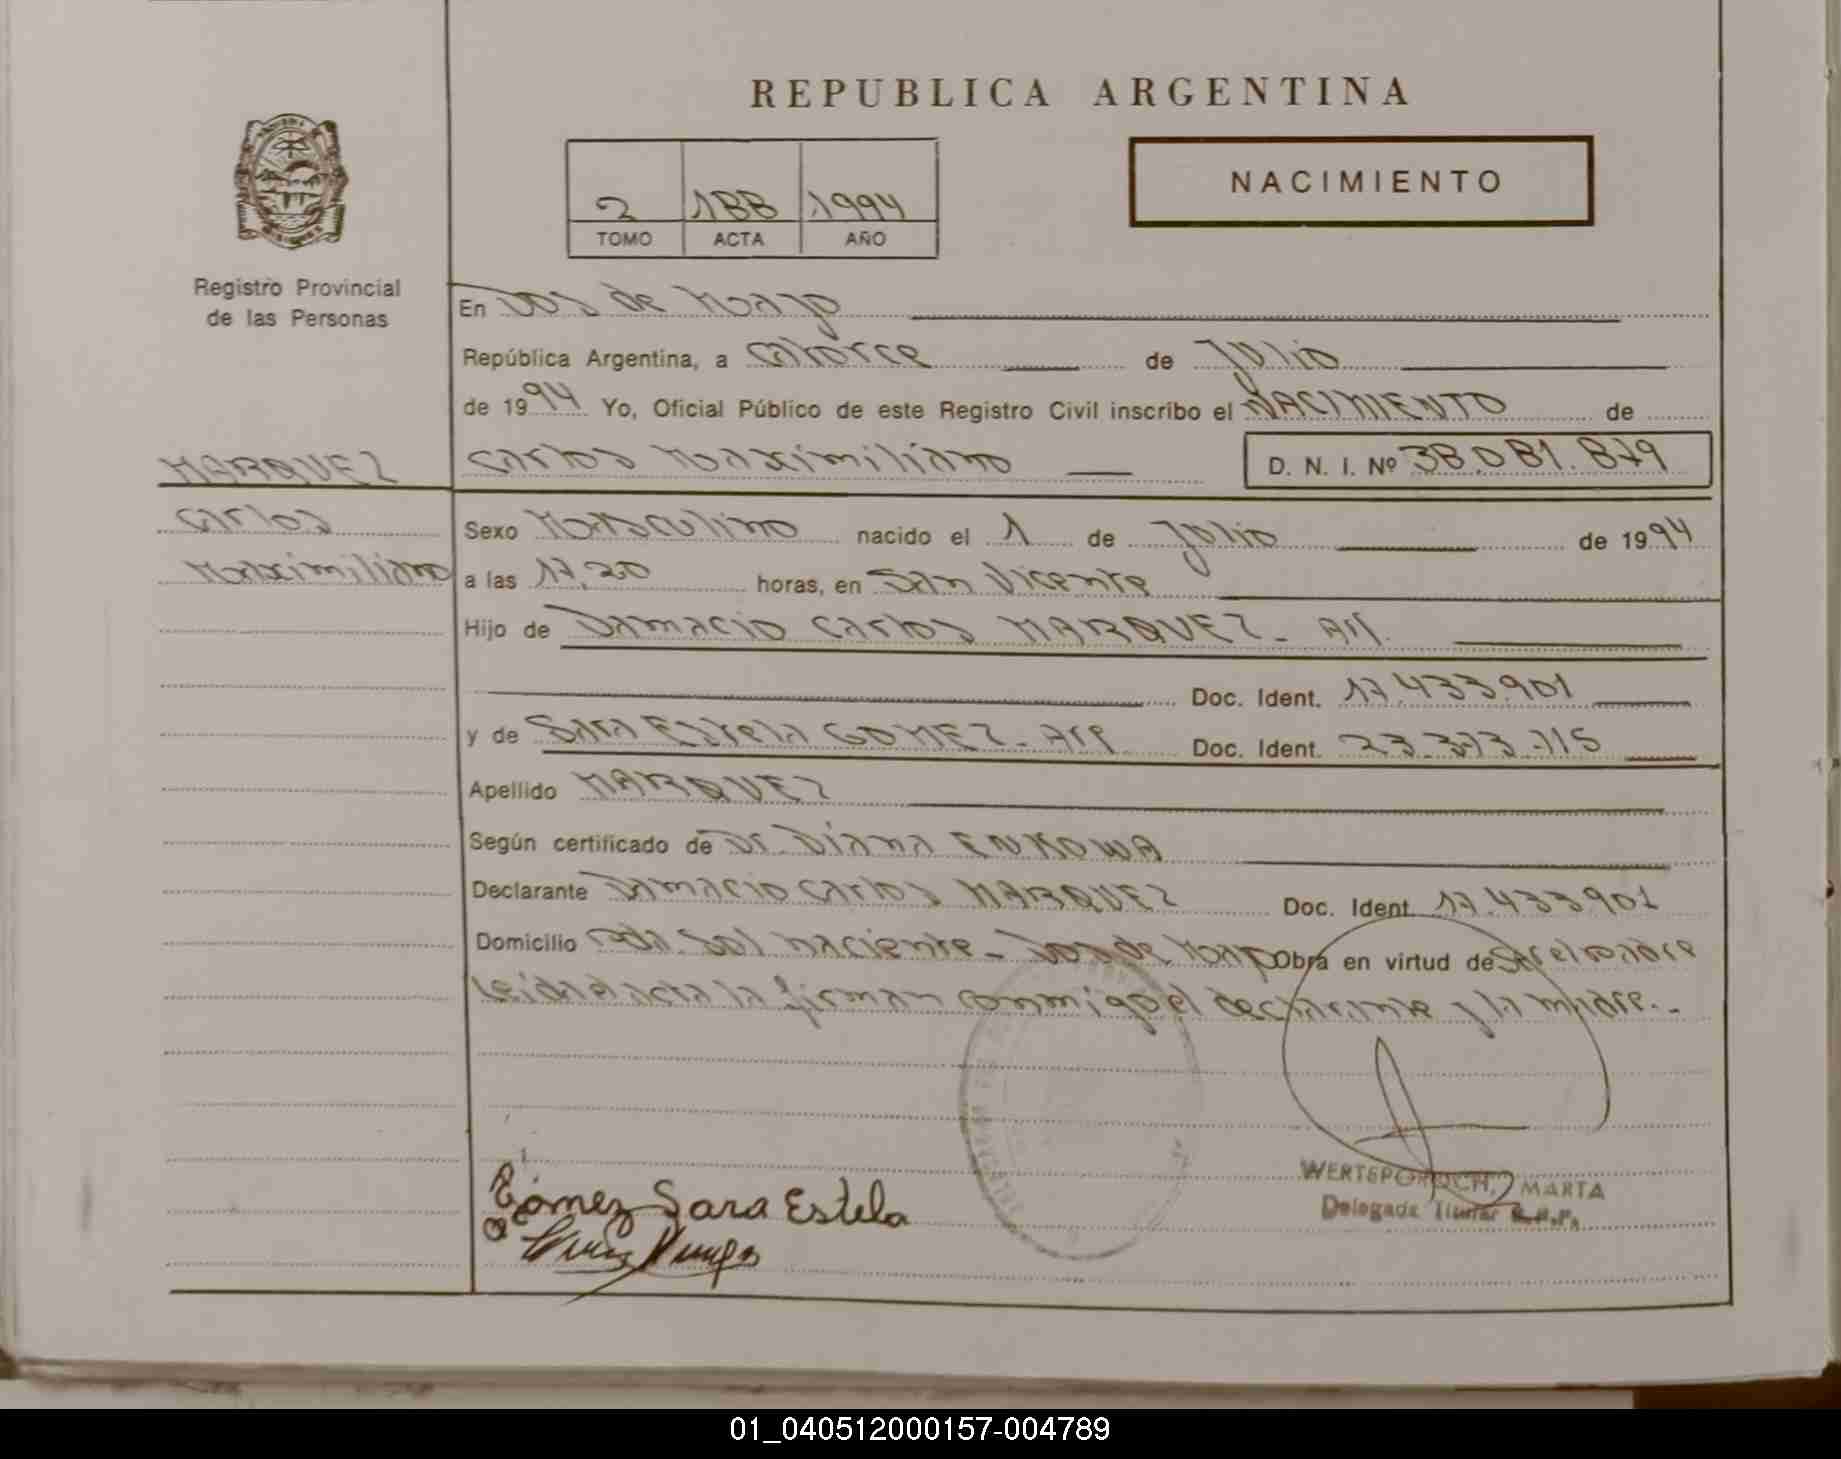 REPUBLICA ARGENTINA
NACIMIENTO
2 188 1994
TOMO ACTA AÑO
Registro Provincial
de las Personas
En Dos de Mayo
República Argentina, a catorce de Julio
de 1994 Yo, Oficial Público de este Registro Civil inscribo el NACIMIENTO de
MARQUEZ
Carlos Maximiliano D. N. I. Nº 38.081.879
Carlos
Maximiliano
Sexo Masculino nacido el 1 de Julio de 1994
a las 17,20 horas, en San Vicente
Hijo de Damacio Carlos MARQUEZ - Arg.
Doc. Ident. 17.433.901
y de Sara Estela GOMEZ - Arg Doc. Ident. 23.373.115
Apellido MARQUEZ
Según certificado de Dr. Diana ENKOWA
Declarante Damacio Carlos MARQUEZ Doc. Ident. 17.433.901
Domicilio Sol naciente - Dos de Mayo Obra en virtud de Ser el padre
Leida el acta la firman conmigo el declarante y la madre.-
Gómez Sara Estela
MARTA
Delegada Titular R.P.P.
01_040512000157-004789